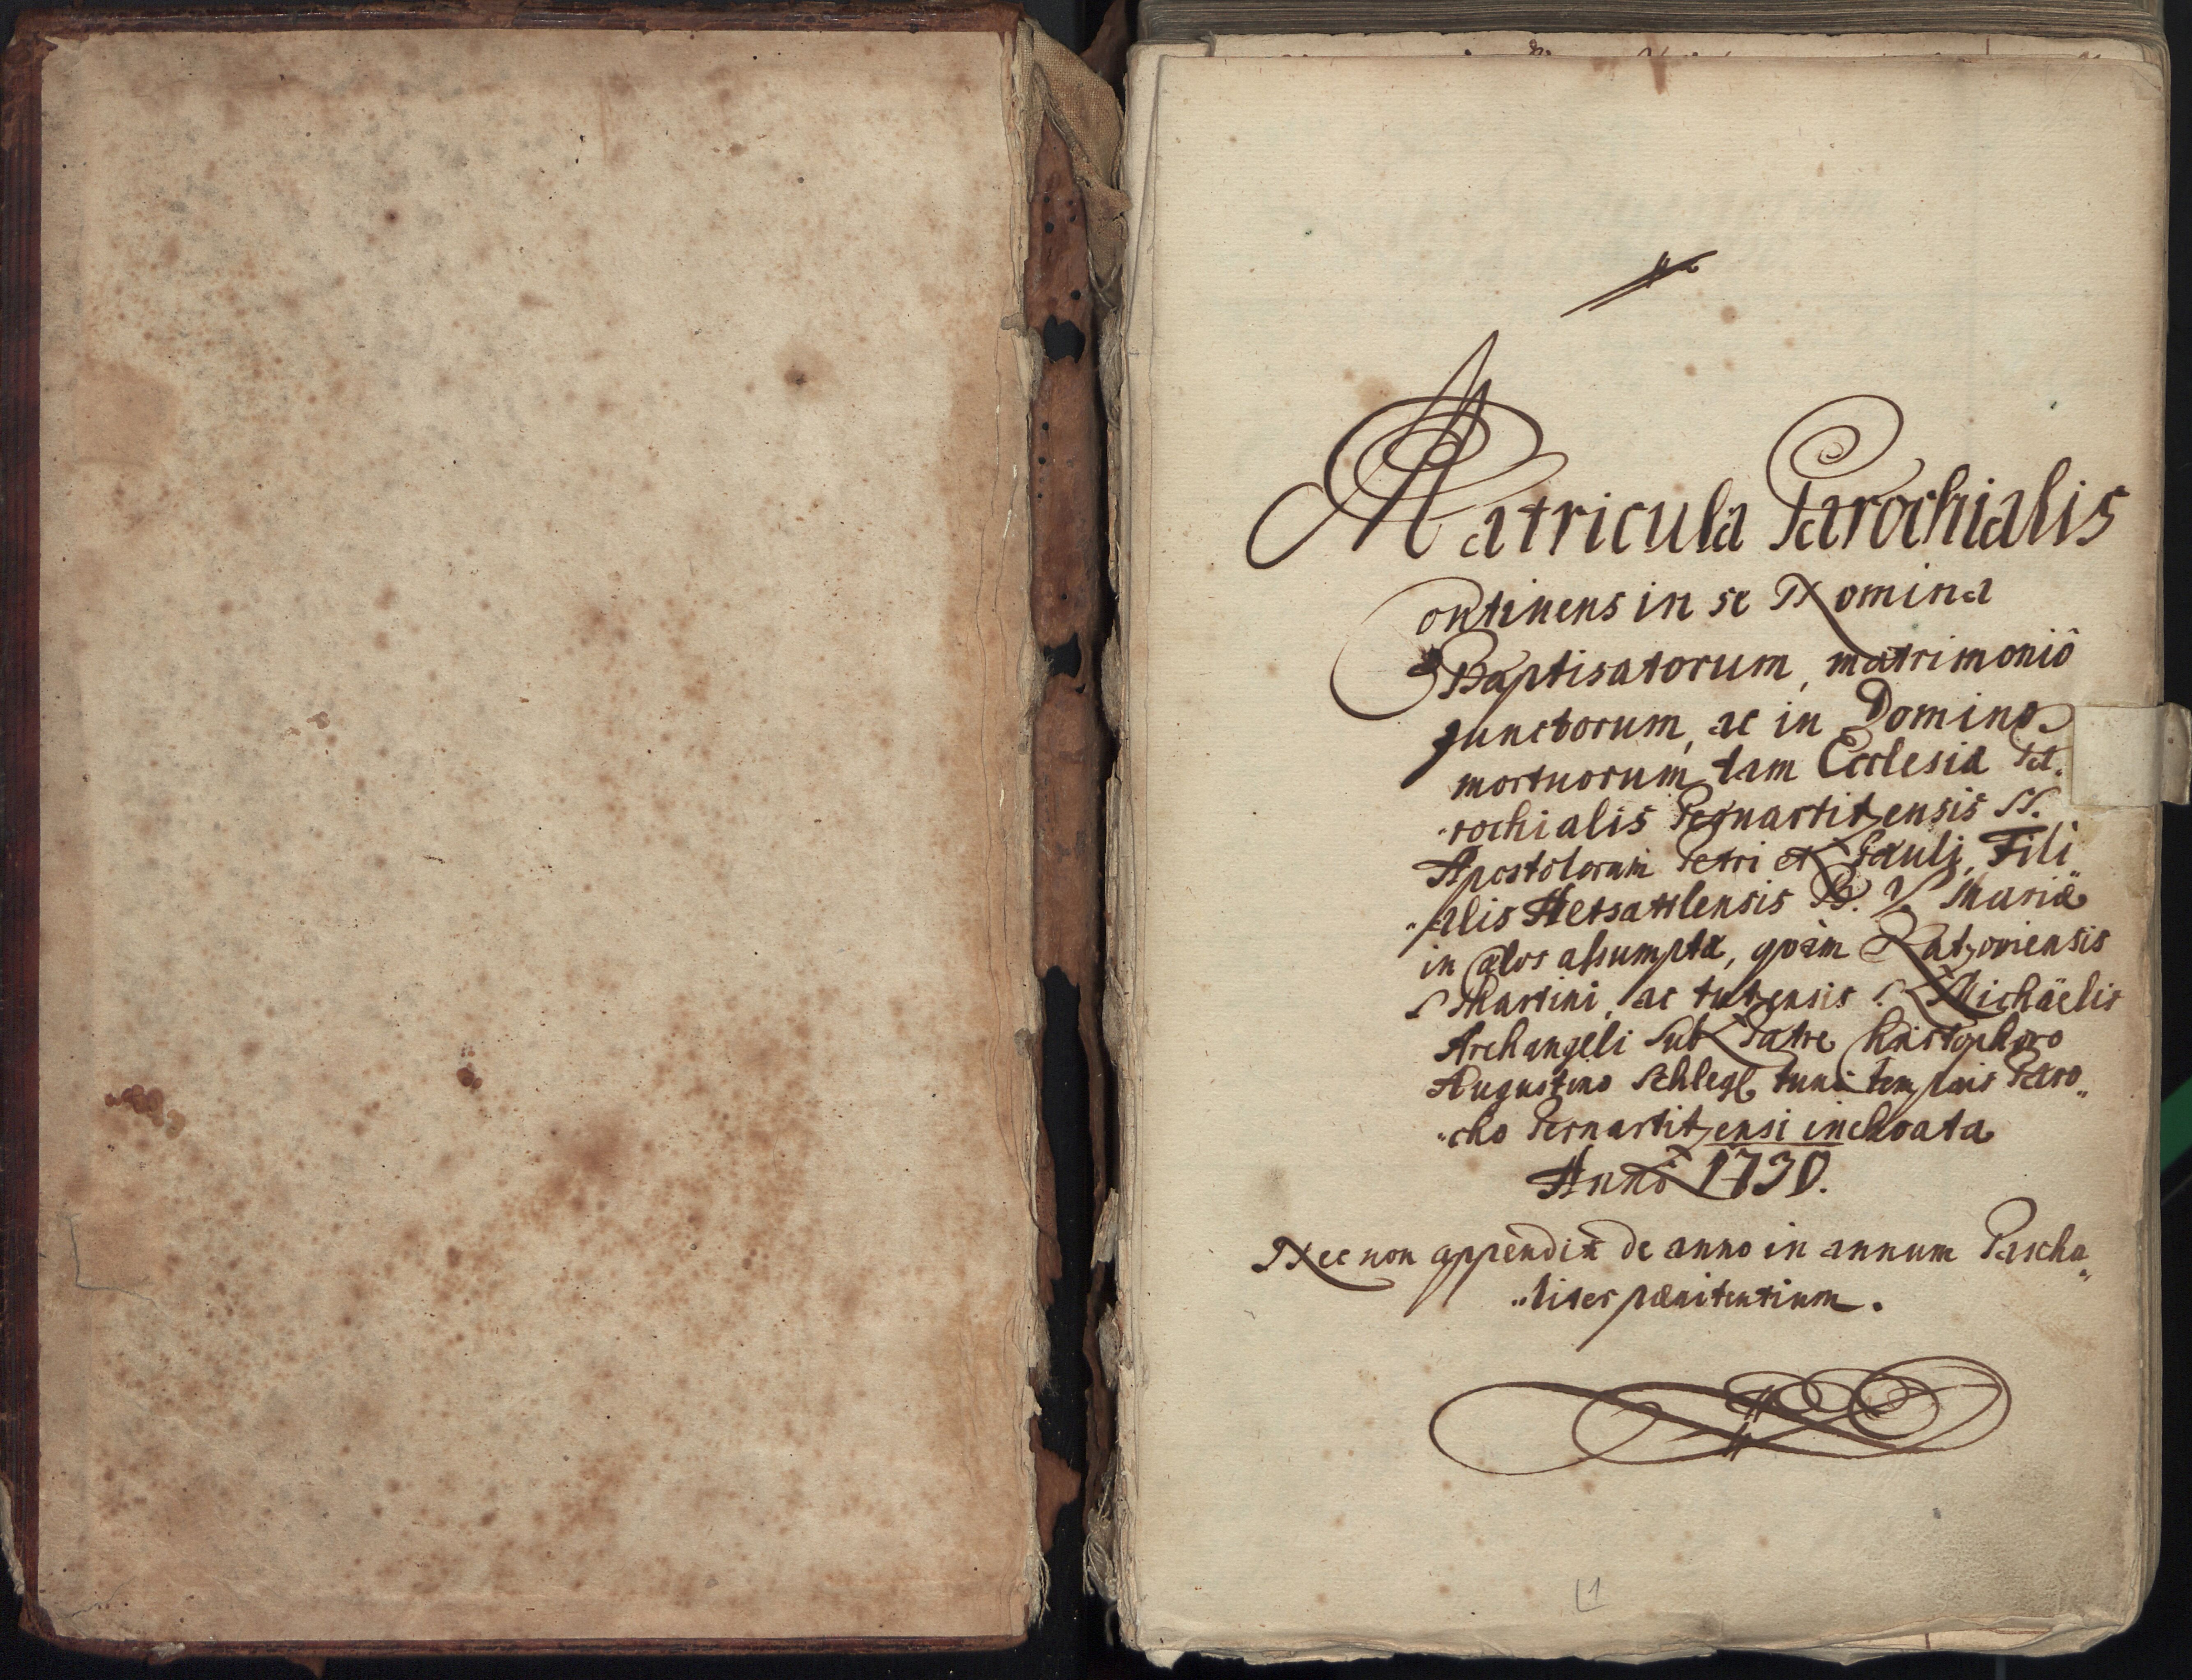 Matricula Parochialis
Continens in se Nomina
Baptisatorum, matrimoniô
Junctorum, ac in Domino
mortuorum, tam Ecclesiæ Pa-
rochialis Pernartitzensis SS.
Apostolorum Petri et Pauli, Fili
alis B. V. Mariæ
in Cælos assumptæ, quàm
S Martini, ac tutzensis S. Michäelis
Archangeli Sub Patre Christophoro
Augustino Schlegl tunc temporis Paro„
„cho Pernartitzensi inchoata
Annô 1730.
Nec non appendix de anno in annum Pascha„
„liter pænitentium.
1